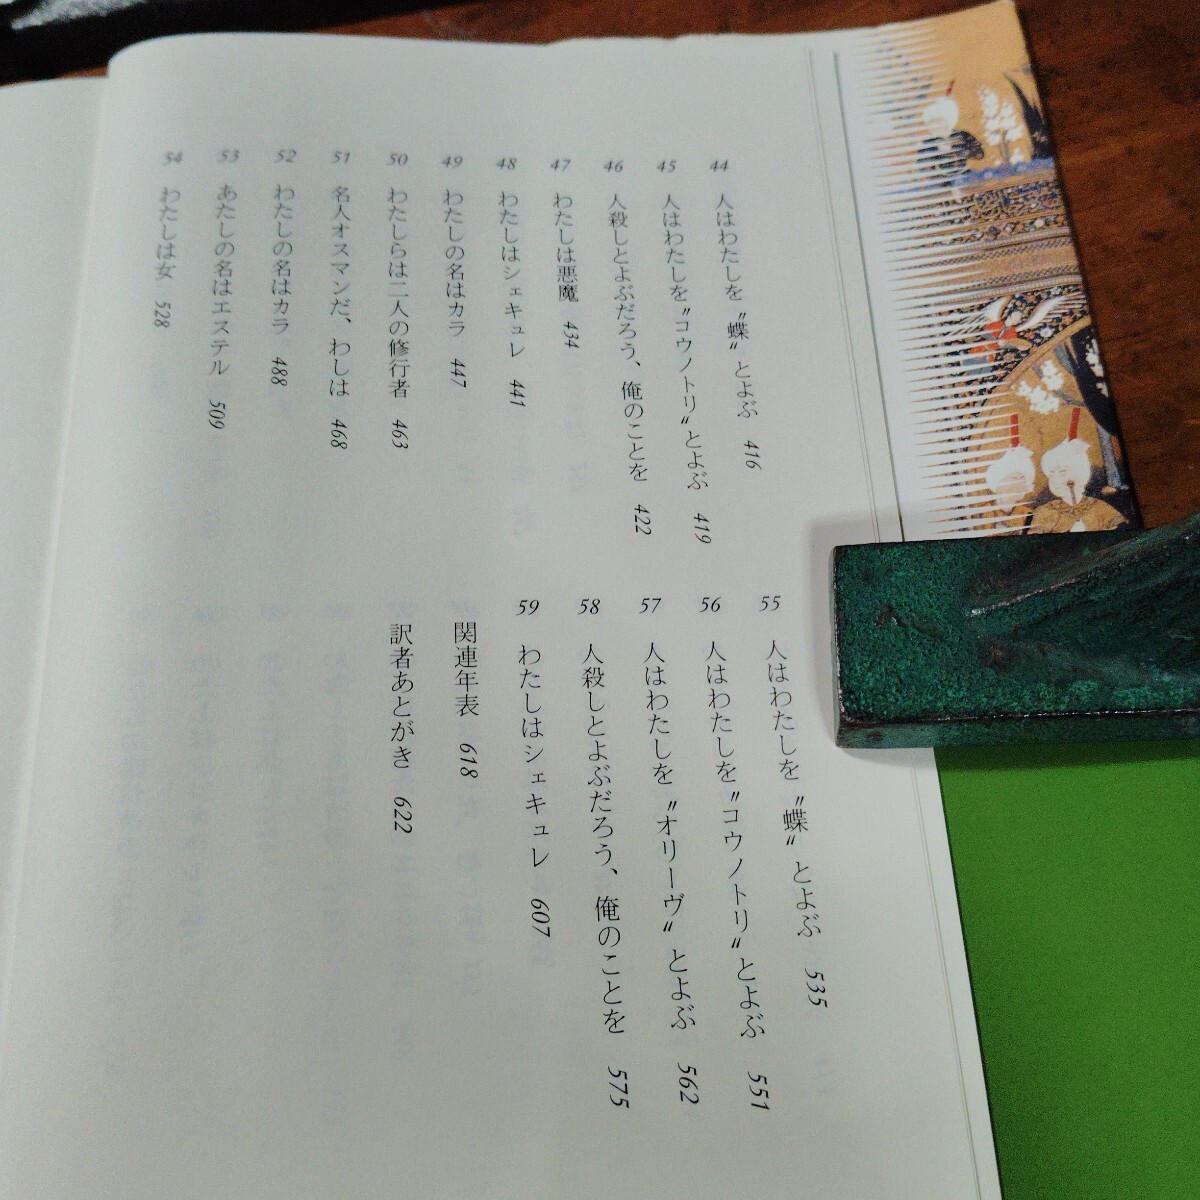 44 人はわたしを〝蝶〟とよぶ 416
45 人はわたしを〝コウノトリ〟とよぶ 419
46 人殺しとよぶだろう、俺のことを 422
47 わたしは悪魔 434
48 わたしはシェキュレ 441
49 わたしの名はカラ 447
50 わたしらは二人の修行者 463
51 名人オスマンだ、わしは 468
52 わたしの名はカラ 488
53 あたしの名はエステル 509
54 わたしは女 528
55 人はわたしを〝蝶〟とよぶ 535
56 人はわたしを〝コウノトリ〟とよぶ 551
57 人はわたしを〝オリーヴ〟とよぶ 562
58 人殺しとよぶだろう、俺のことを 575
59 わたしはシェキュレ 607
関連年表 618
訳者あとがき 622